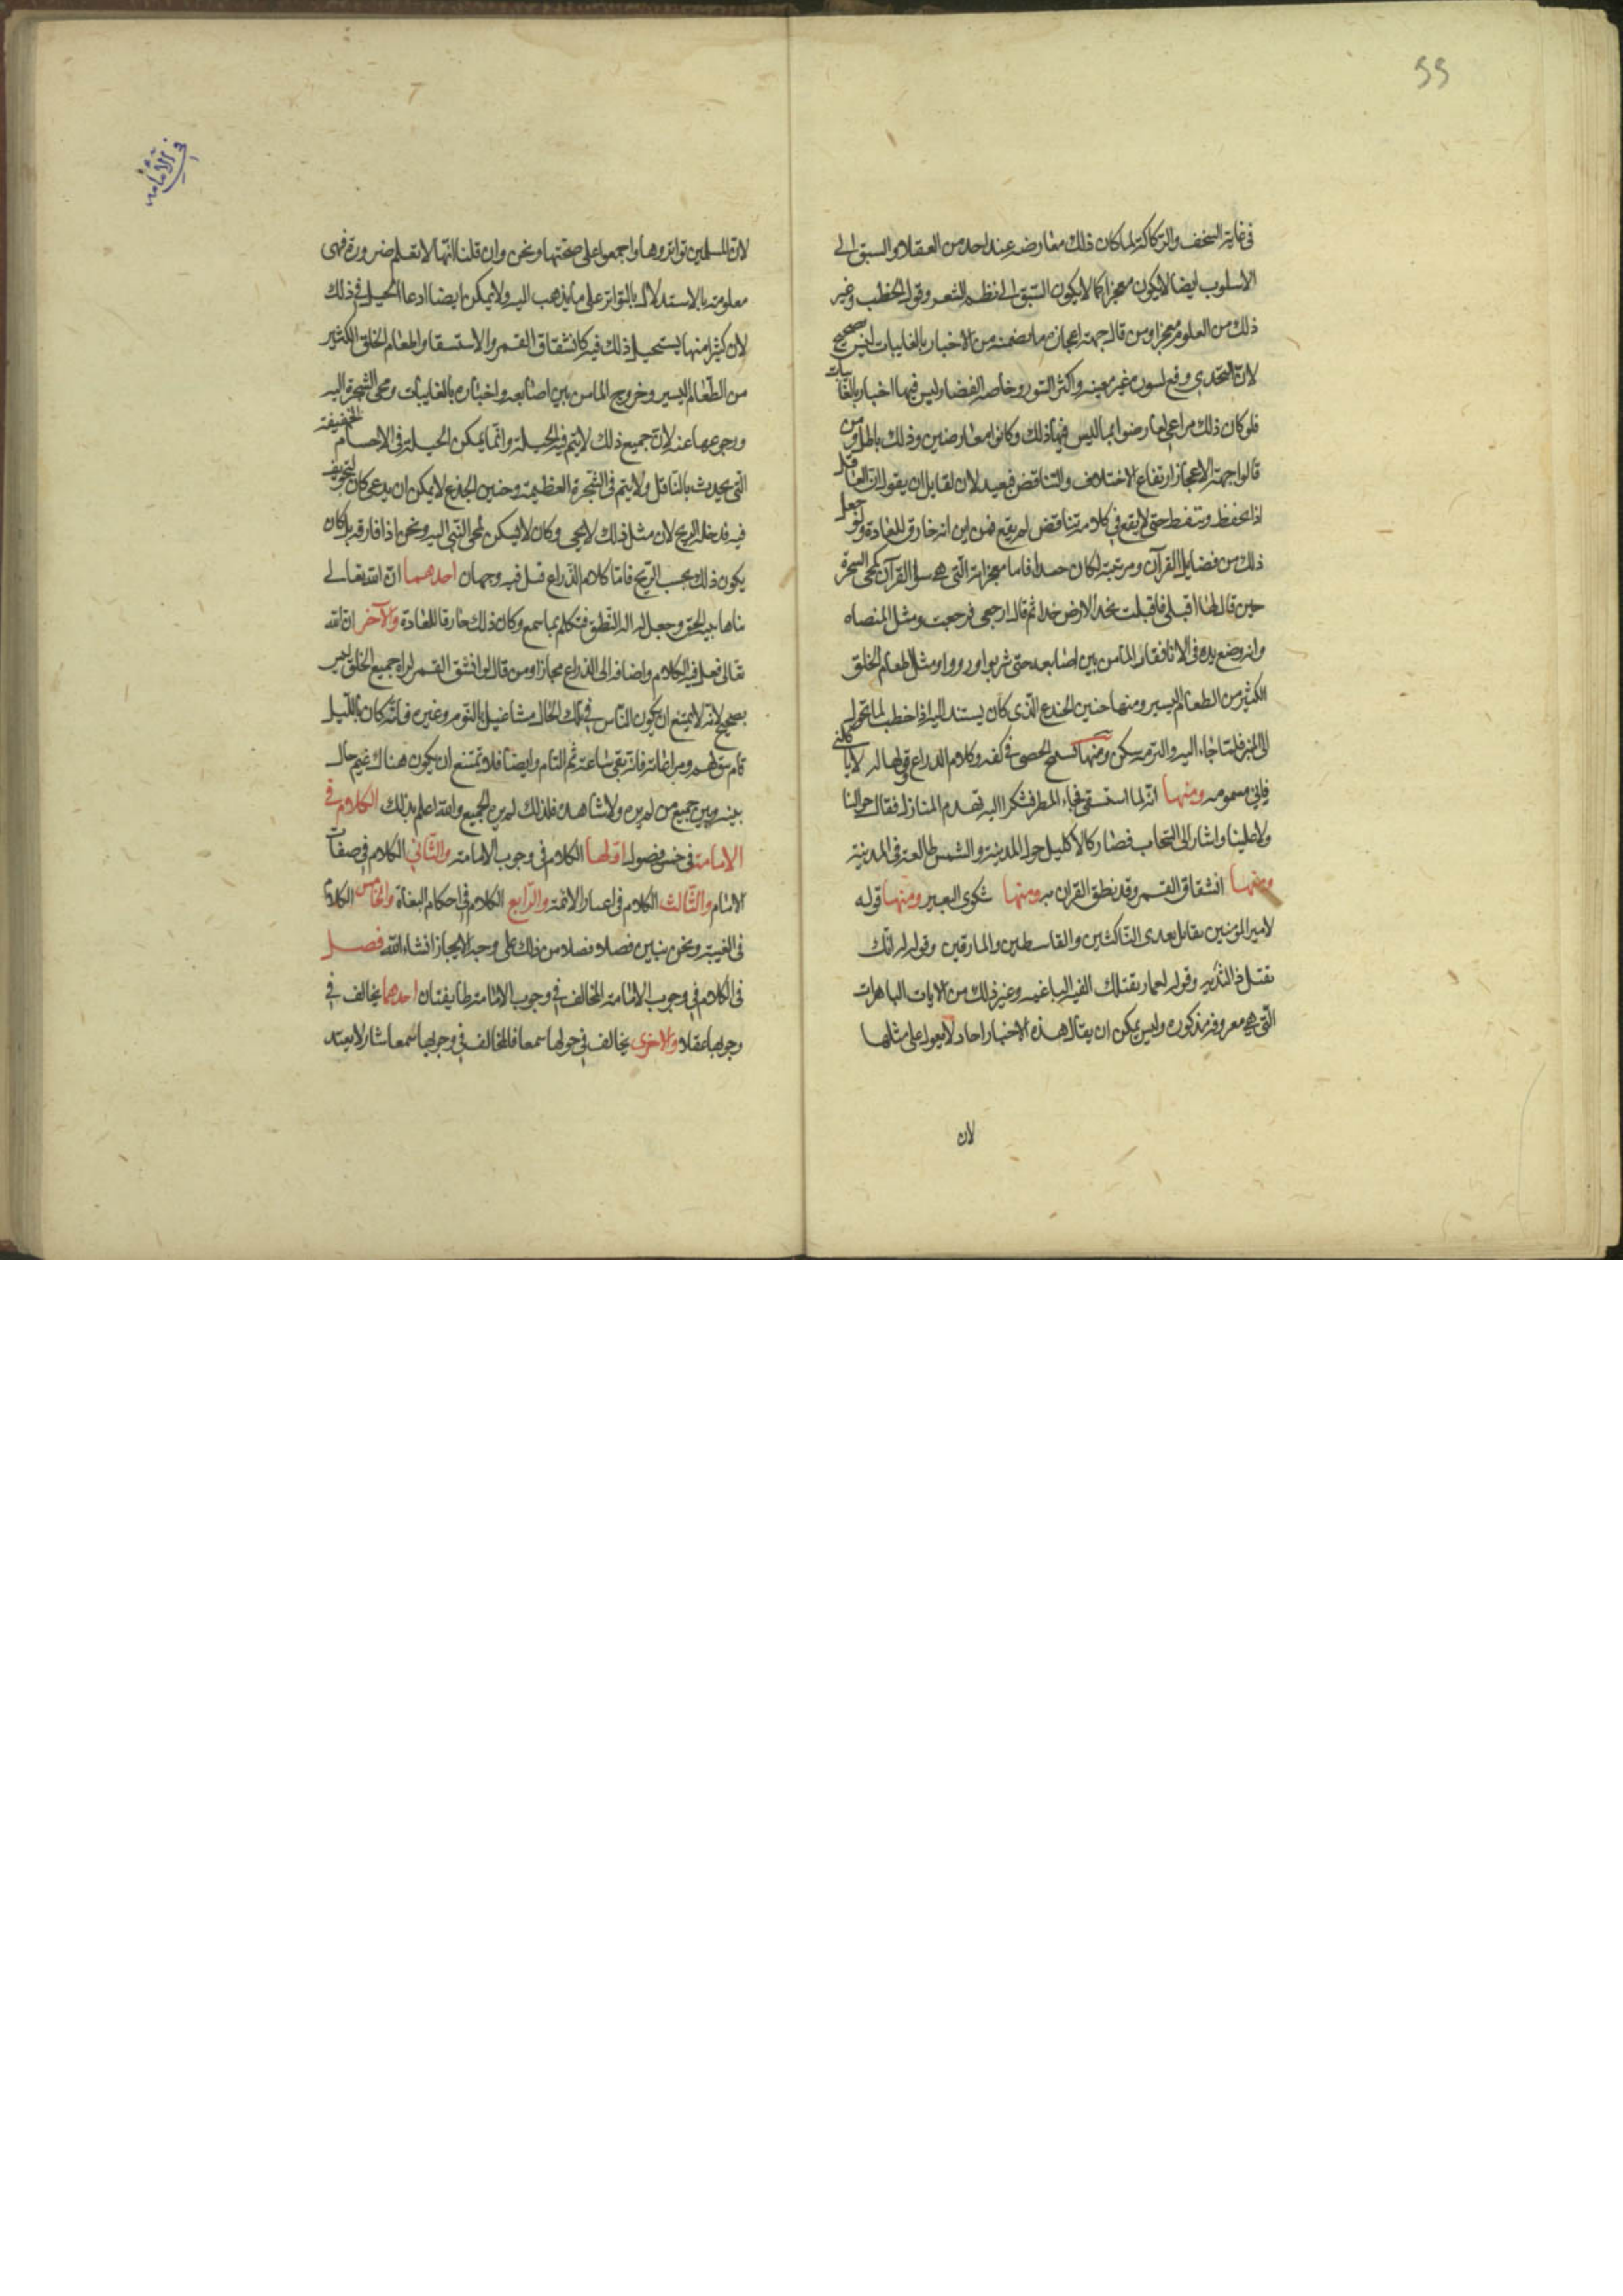 في غاية السخف والركاكة لما كان ذلك معارضه عند احد من العقلاء والسبق الى
الاسلوب ايضا لايكون معجزا كما لايكون السبق الى نظم الشعر وقول الخطب وغير
ذلك من العلوم معجزا ومن قال جهة اعجازه ما تضمنه من الاخبار بالغايبات ليس بصحيح
لان التحدي وقع بسورة غير معينه واكثر السور وخاصه القصار ليس فيها اخبار بالغايبات
فلو كان ذلك مراعى لعارضوا بما ليس فيها ذلك وكانوا معارضين وذلك باطل ومن
قالوا جهة الاعجاز ارتفاع الاختلاف والتناقض فبعيد لان لقايل ان يقول ان العاقل
اذا تحفظ وتيقظ حتى لايقع في كلامه تناقض لم يقع فمن اين انه خارق للعادة ولو جعل
ذلك من فضايل القرآن ومرتبته لكان جيدا فاما معجزاته التي هي سوى القرآن كمجى الشجرة
حين قال لها اقبلي فاقبلت تخد الارض خدا ثم قال ارجعي فرجعت ومثل الميضاه
وانه وضع يده في الانا ففار الماء من بين اصابعه حتى شربوا ورووا ومثل اطعام الخلق
الكثير من الطعام اليسير ومنها حنين الجذع الذي كان يستند اليه اذا خطب لما تحول
الى المنبر فلما جاء اليه والتزمه سكن ومنها تسبيح الحصى في كفه وكلام الذراع وقولها له لا تاكلني
فاني مسمومه ومنها انه لما استسقى فجاء المطر فشكوا اليه تهدم المنازل فقال حوالينا
ولا علينا واشار الى السحاب فصار كالاكليل حول المدينة والشمس طالعة في المدينة
ومنها انشقاق القمر وقد نطق القران به ومنها شكوى البعير ومنها قوله
لامير المؤمنين تقاتل بعدى الناكثين والقاسطين والمارقين وقوله له انك
تقتل ذا الثديه وقوله لعمار تقتلك الفئه الباغيه وغير ذلك من الايات الباهرات
التي هي معروفة مذكوره وليس يمكن ان يقال هذه الاخبار احاد لايعول على مثلها
لان
في الامامة
لان المسلمين تواتروها واجمعوا على صحتها ونحن وان قلنا انها لا تعلم ضرورة فهى
معلومة بالاستدلال بالتواتر على ما يذهب اليه ولا يمكن ايضا ادعا الحيل في ذلك
لان كثيرا منها يستحيل ذلك فيه كانشقاق القمر والاستسقا واطعام الخلق الكثير
من الطعام اليسير وخروج الماء من بين اصابعه واخباره بالغايبات ومجى الشجرة اليه
ورجوعها عنه لان جميع ذلك لايتم فيه الحيلة وانما يمكن الحيلة في الاجسام الخفيفة
التي يحدث بالتناقل ولايتم في الشجرة العظيمة وحنين الجذع لايمكن ان يدعى كان لتجويف
فيه فدخله الريح لان مثل ذلك لايخفى وكان لا يسكن لمجى النبي اليه ونحن اذا فارقه بل كان
يكون ذلك بحسب الريح فاما كلام الذراع قيل فيه وجهان احدهما ان الله تعالى
بناها بنيه الحى وجعل له اله النطق فتكلم بما سمع وكان ذلك خارقا للعادة والاخر ان الله
تعالى فعل فيه الكلام واضافه الى الذراع مجازا ومن قال لو انشق القمر لراه جميع الخلق ليس
بصحيح لانه لايمتنع ان يكون الناس في تلك الحال مشاغيل بالنوم وغيره فانه كان بالليل
بينه وبين جميع من لم يره ولا شاهده فلذلك لم يره الجميع والله اعلم بذلك الكلام في
الامامة في خمس فصول اولها الكلام في وجوب الامامة والثاني الكلام في صفات
الامام والثالث الكلام في اعيان الائمة والرابع الكلام في احكام البغاة والخامس الكلام
في الغيبة ونحن نبين فصلا فصلا من ذلك على وجه الايجاز انشاء الله فصل
في الكلام في وجوب الامامة المخالف في وجوب الامامة طايفتان احدهما يخالف في
وجوبها عقلا والاخرى يخالف في وجوبها سمعا فالمخالف في وجوبها سمعا شاذ لا يعتد